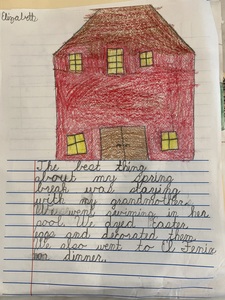 Elizabeth
The best thing
about my spring
break was staying
with my grandmother.
We went swiming in her
pool. We dyed Easter
eggs and decorated them.
We also went to El Fenix
dinner.